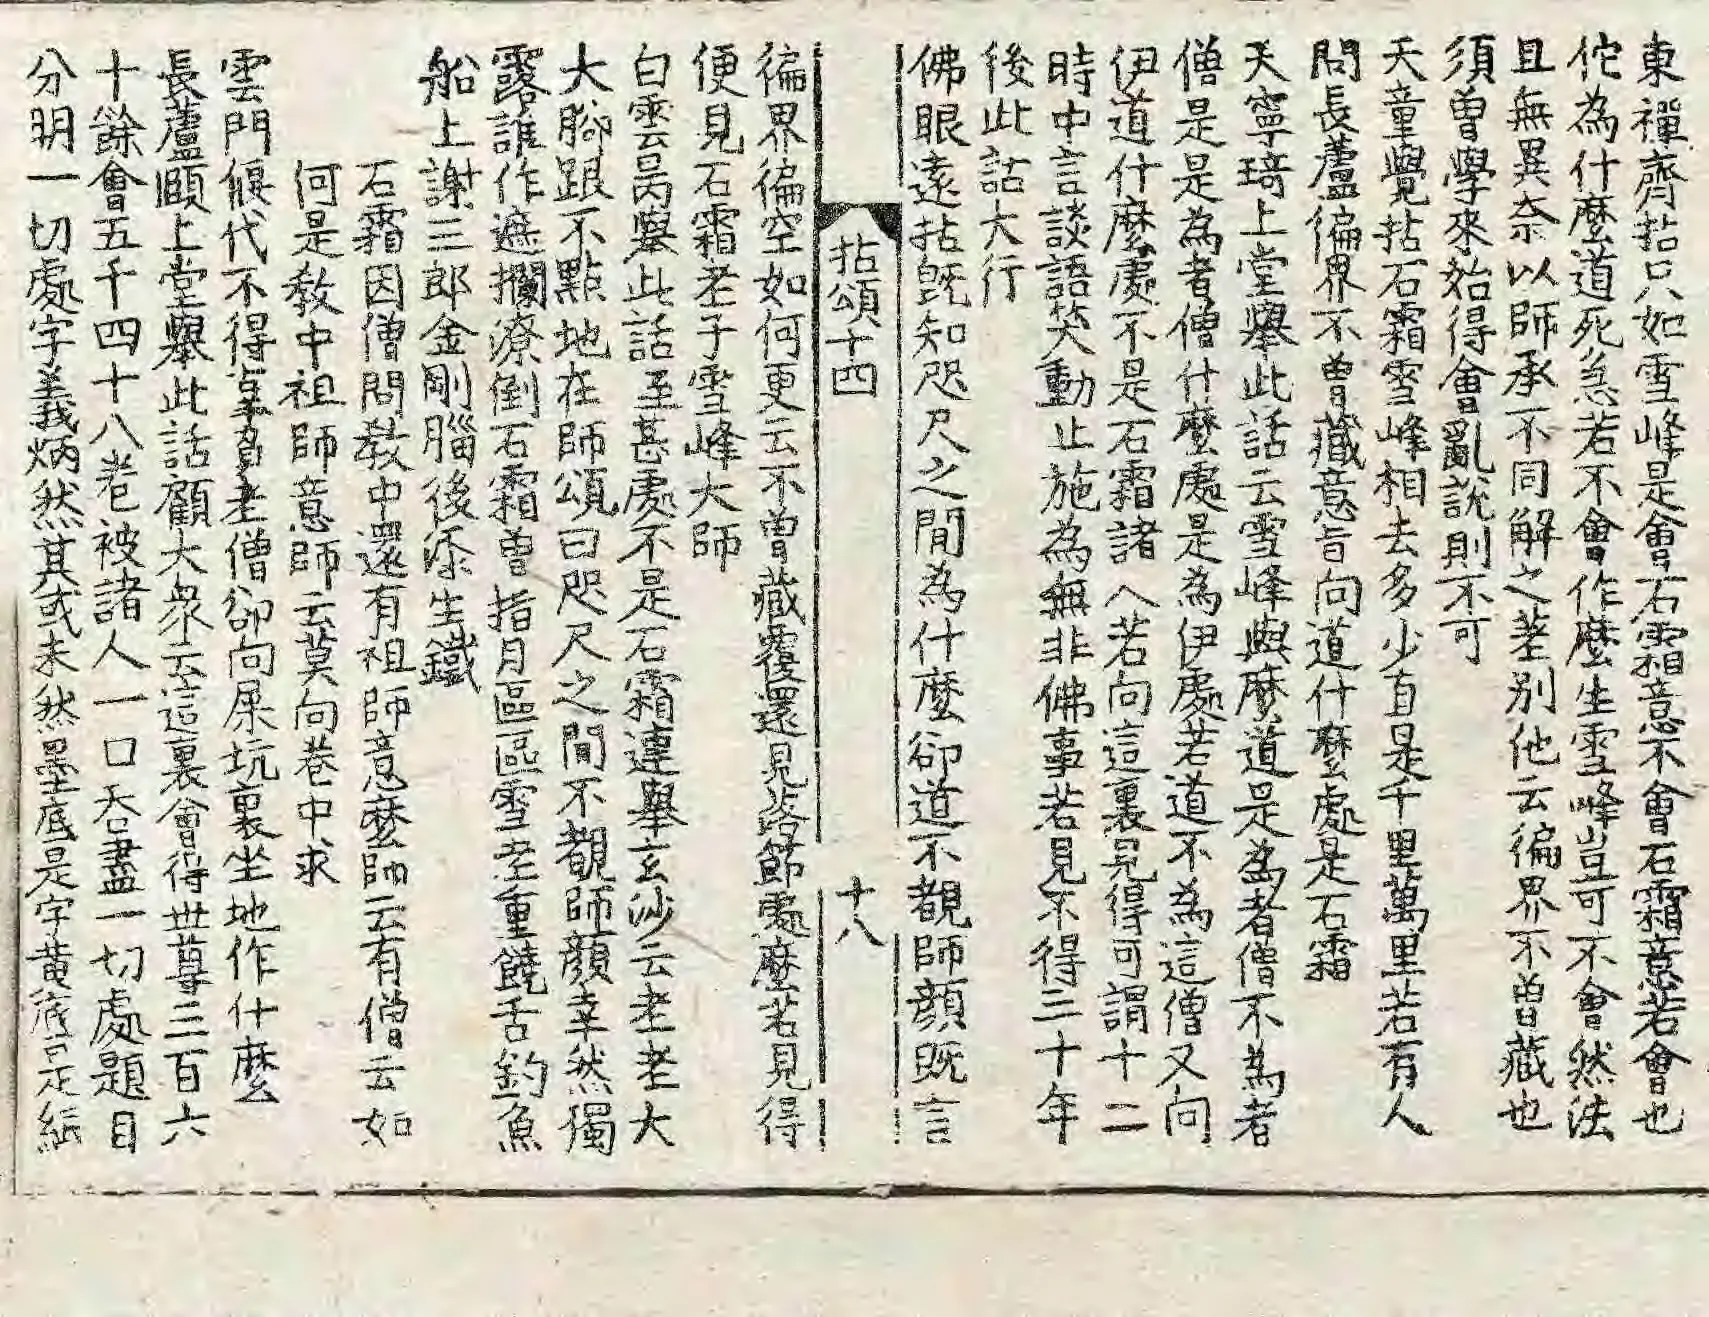 東禪齊拈只如雪峰是會石霜意不會石霜意若會也
佗為什麼道死急若不會作麼生雪峰豈可不會然法
且無異奈以師承不同解之差別他云徧界不曾藏也
須曾學來始得會亂說則不可
天童覺拈石霜雪峰相去多少直是千里萬里若有人
問長蘆徧界不曾藏意旨向道什麼處是石霜
天寧琦上堂舉此話云雪峰與麼道是為者僧不為者
僧是是為者僧什麼處是為伊處若道不為這僧又向
伊道什麼處不是石霜諸人若向這裏見得可謂十二
時中言談語笑動止施為無非佛事若見不得三十年
後此話大行
佛眼遠拈既知咫尺之間為什麼卻道不覩師顏既言
拈頌十四 十八
徧界徧空如何更云不曾藏覆還見誵節處麼若見得
便見石霜老子雪峰大師
白雲昺舉此話至甚處不是石霜連舉玄沙云老老大
大腳跟不點地在師頌曰咫尺之間不覩師顏幸然獨
露誰作遮攔潦倒石霜曾指月區區雪老重饒舌釣魚
船上謝三郎金剛腦後添生鐵
石霜因僧問教中還有祖師意麼師云有僧云如
何是教中祖師意師云莫向卷中求
雲門偃代不得辜負老僧卻向屎坑裏坐地作什麼
長蘆賾上堂舉此話顧大眾云這裏會得世尊三百六
十餘會五千四十八卷被諸人一口吞盡一切處題目
分明一切處字義炳然其或未然墨底是字黃底是紙